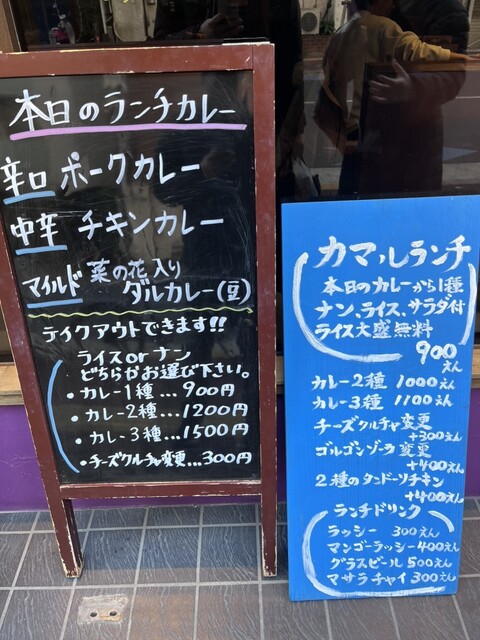 本日のランチカレー
辛口 ポークカレー
中辛 チキンカレー
マイルド 菜の花入り
ダルカレー(豆)
テイクアウトできます!!
ライスorナン
どちらかお選び下さい。
・カレー1種…900円
・カレー2種…1200円
・カレー3種…1500円
・チーズクルチャ変更…300円
カマルランチ
本日のカレーから1種
ナン、ライス、サラダ付
ライス大盛無料
900えん
カレー2種 1000えん
カレー3種 1100えん
チーズクルチャ変更
+300えん
ゴルゴンゾーラ変更
+400えん
2種のタンドーリチキン
+400えん
ランチドリンク
ラッシー 300えん
マンゴーラッシー400えん
グラスビール 500えん
マサラチャイ 300えん